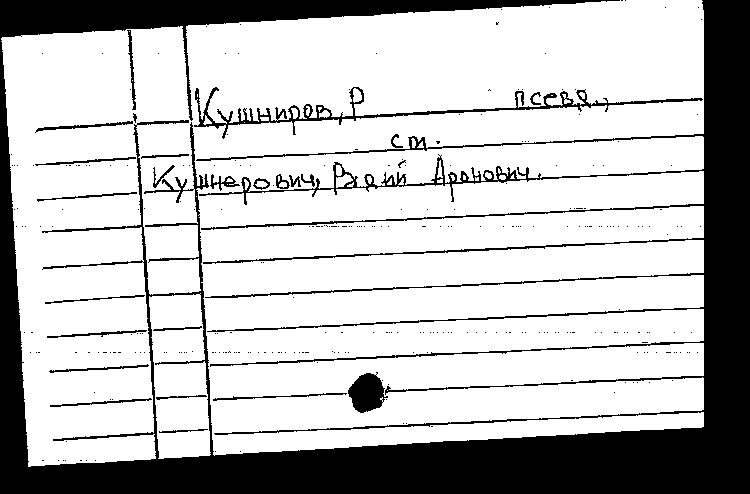 Кушниров, Р псевд.,
см.
Кушнерович, Рафаий Аронович.